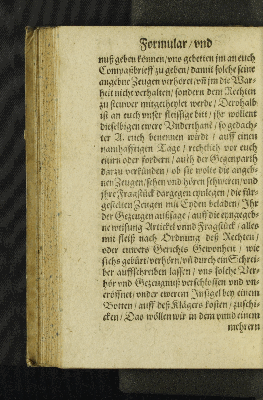 Formular / vnd
muß geben können / vns gebetten jm an euch
Compaßbrieff zu geben / damit solche seine
angebne Zeugen verhöret / vñ jm die War-
heit nicht verhalten / sondern dem Rechten
zu stewer mitgetheylet werde / Derohalb
ist an euch vnser fleissige bitt / jhr wöllent
dieselbigen ewere Vnderthanē / so gedach-
ter A. euch benennen wirdt / auff einen
namhafftigen Tage / rechtlich vor euch
eruordern / auch der Gegenparth
darzu verkünden / ob sie wolte die angeb-
nen Zeugen / sehen vnd hören schweren / vnd
jhre Fragstück dargegen eynlegen / die für-
gestelten Zeugen mit Eyden beladen / Ihr
der Gezeugen aussage / auff die eyngegeb-
ne weisung Artickel vnnd Fragstück / alles
mit fleiß nach Ordnung deß Rechten /
oder ewers Gerichts Gewonheit / wie
sichs gebürt / verhörn / vñ durch ein Schrei-
ber auffschreiben lassen / vns solche Ver-
hör vnd Gezeugnuß verschlossen vnd vn-
eröffnet / vnder ewerem Insigel bey einem
Botten / auff deß Klägers kosten / zuschi-
cken / Das wöllen wir in dem vnnd einem
mehrern